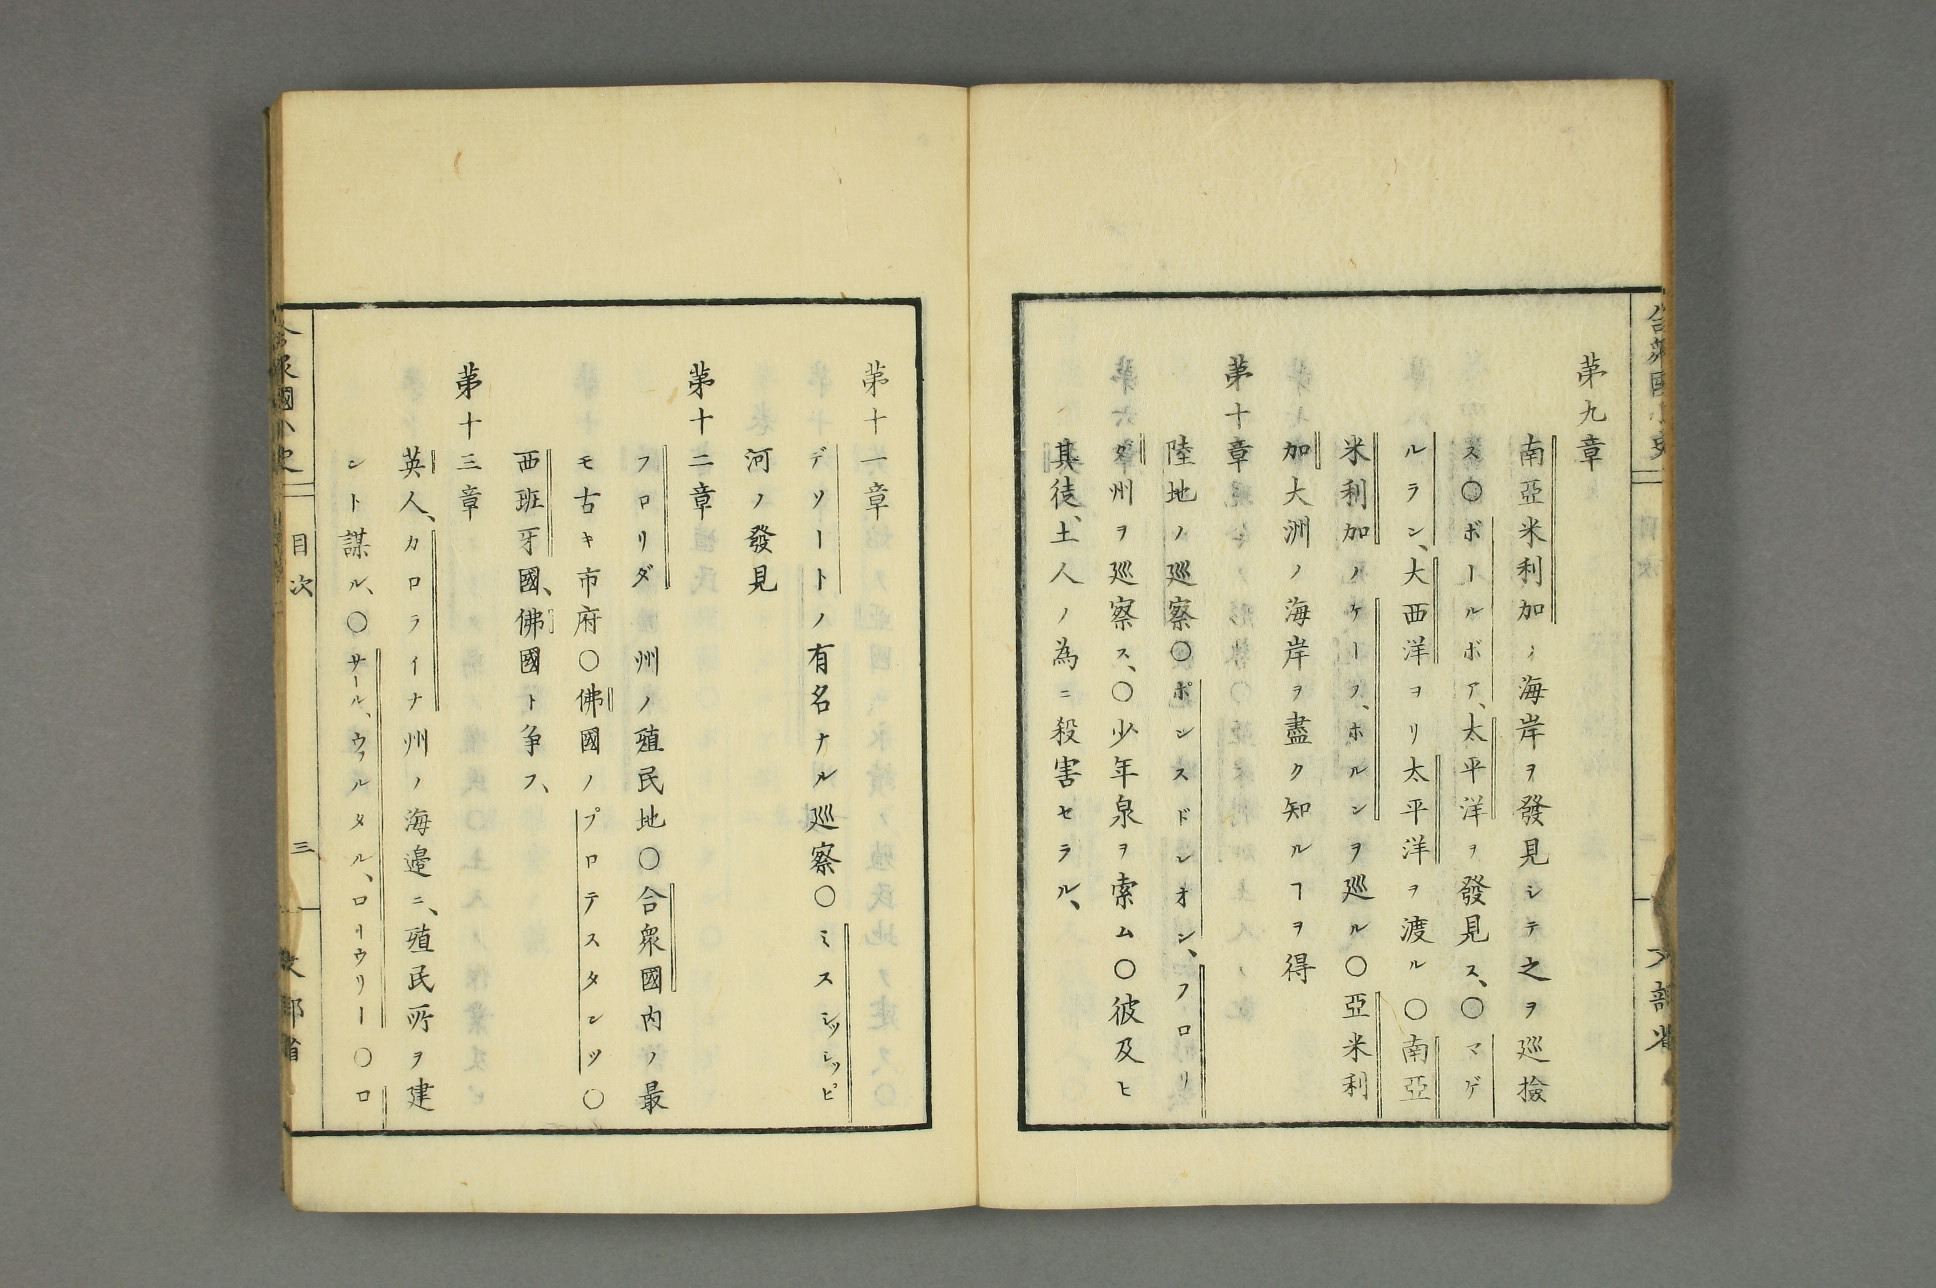 合衆國小史
目次
文部省
第九章
南亞米利加ノ海岸ヲ發見シテ之ヲ巡撿
ス〇ボールボア、太平洋ヲ發見ス、〇マゲ
ルラン、大西洋ヨリ太平洋ヲ渡ル〇南亞
米利加ノケープ、ホルンヲ巡ル〇亞米利
加大洲ノ海岸ヲ盡ク知ルヿヲ得
第十章
陸地ノ巡察〇ポンスドンオン、フロリ
ダ州ヲ巡察ス、〇少年泉ヲ索ム〇彼及ヒ
其徒、土人ノ為ニ殺害セラル、
第十一章
デソートノ有名ナル巡察〇ミスシッシッピ
河ノ發見
第十二章
フロリダ州ノ殖民地〇合衆國内ノ最
モ古キ市府〇佛國ノプロテスタンツ〇
西班牙國、佛國ト争フ、
第十三章
英人、カロライナ州ノ海邉ニ、殖民所ヲ建
ント謀ル、〇サール、ウァルタル、ローウリー〇ロ
合衆國小史
目次
三
文部省